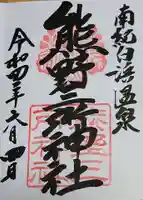 南紀白浜温泉
熊野三所神社
令和四年六月四日